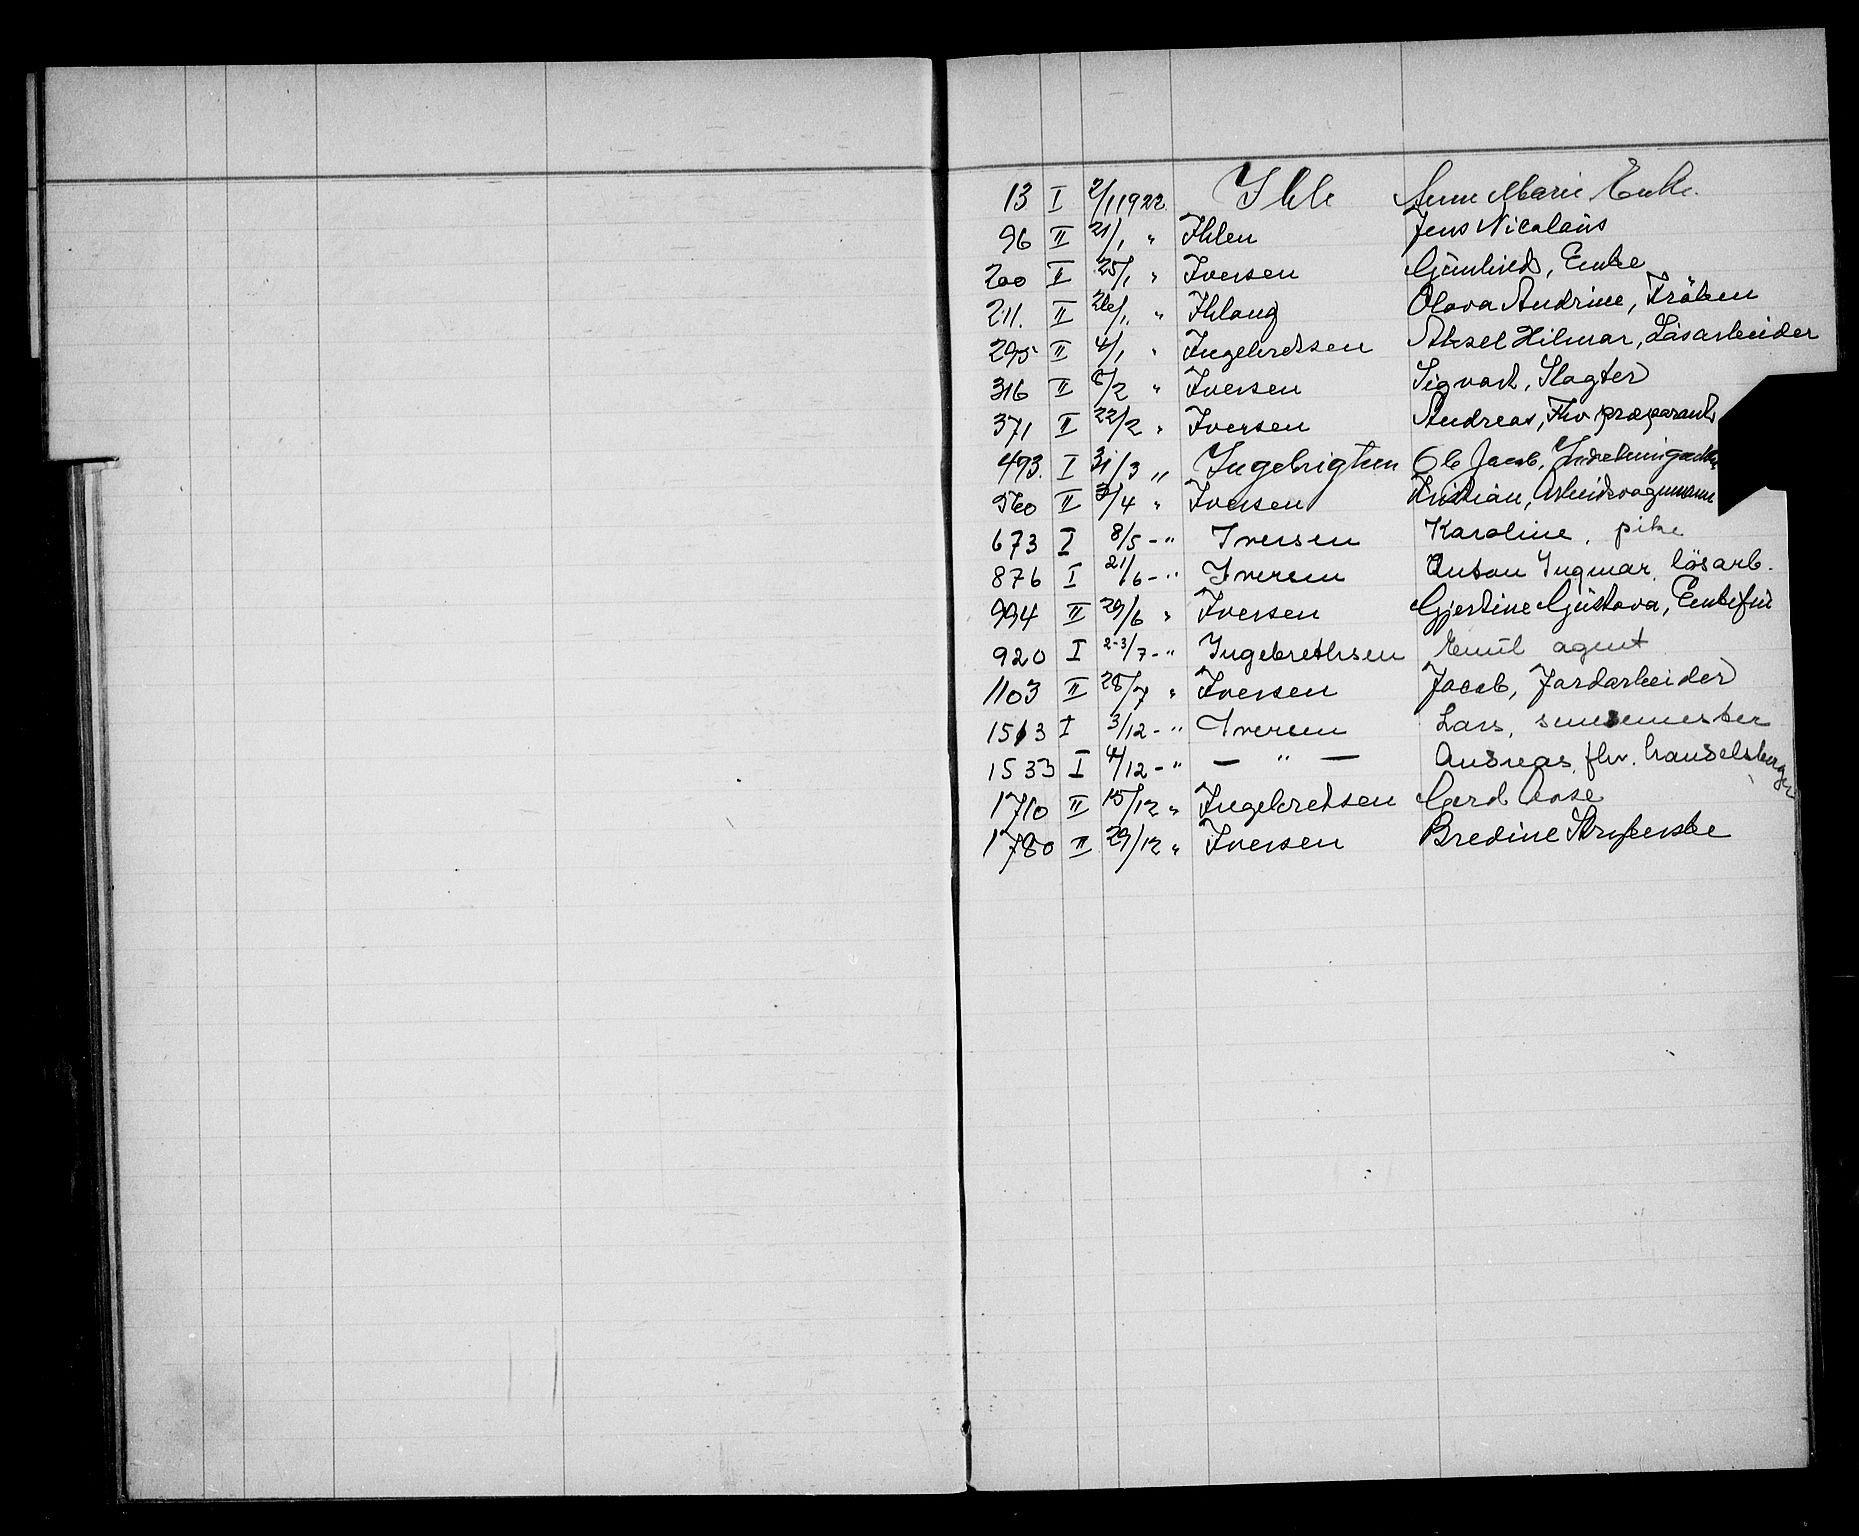 13 I 2/1 1922 Ihle Anne Marie Enke.
96 II 21/1 " Ihlen Jens Nicolaus
200 II 25/1 " Iversen Gunhild, Enke
211. II 26/1 " Ihlang Olava Andrine, Fröken
295 II 4/1 " Ingebretsen Aksel Hilmar, Lösarbeider
316 II 6/2 " Iversen Sigvart, Slagter
371 II 22/2 " Iversen Andreas, Fhv. præparant
493. I 31/3 " Ingebrigtsen Ole Jacob,
560 II 3/4 " Iversen Kristian, Arbeidsvognmann
673 I 8/5 - " Iversen Karoline, pike
876 I 21/6 - " Iversen Anton Ingmar, lösarb.
994 II 29/6 " Iversen Gjertine Gustava, Enkefru
920 I 2-3/7 - " Ingebrethsen Emil agent
1103 II 28/7 " Iversen Jacob, Jordarbeider
1513 I 3/12 - " Iversen Lars, smedmester
1533 I 4/12 - " — " — Andreas, fhv. handelsborger
1710 II 15/12 " Ingebretsen Gerd Aase
1780 II 29/12 " Iversen Bredine